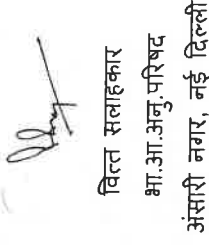 वित्त सलाहकार
भा.आ.अनु.परिषद
अंसारी नगर, नई दिल्ली